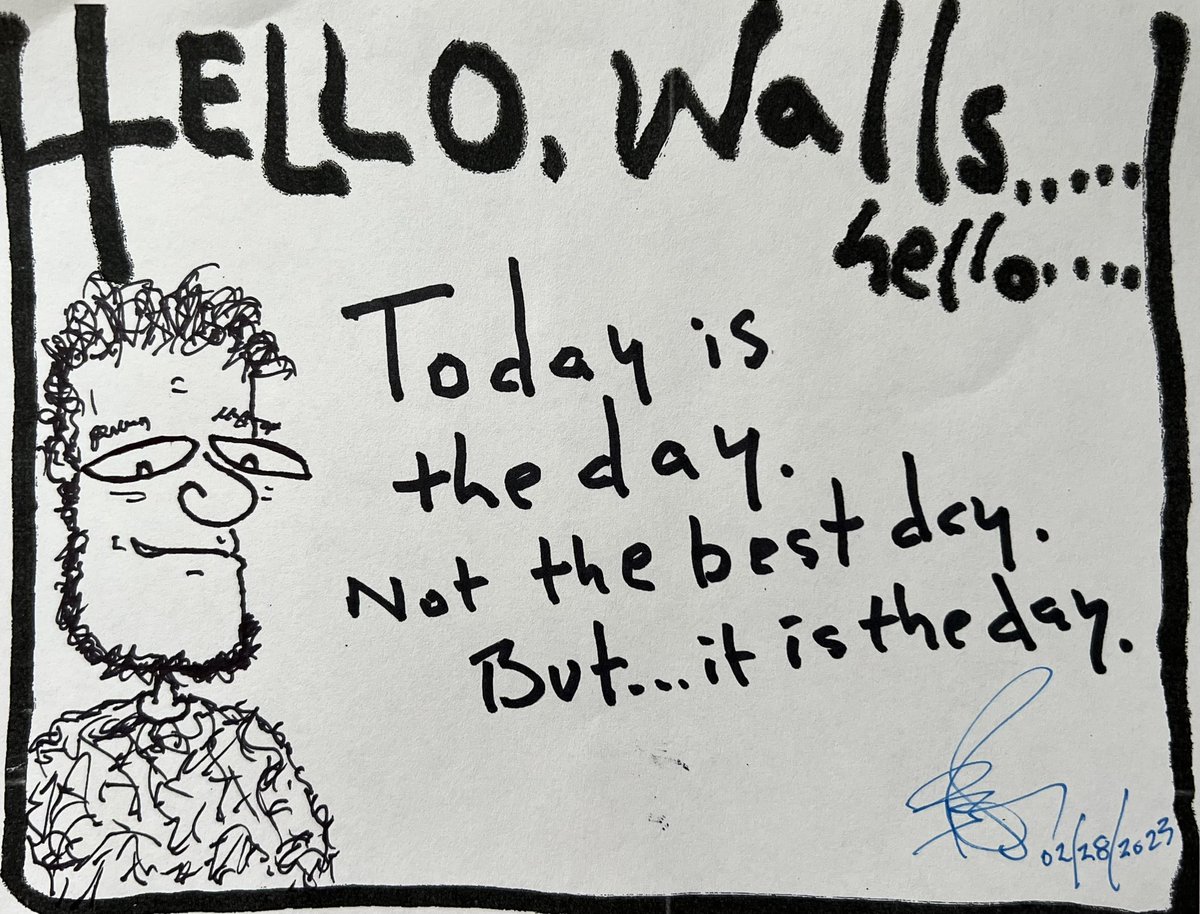 HELLO, Walls.....
hello.....
Today is
the day.
Not the best day.
But...it is the day.
02/28/2023